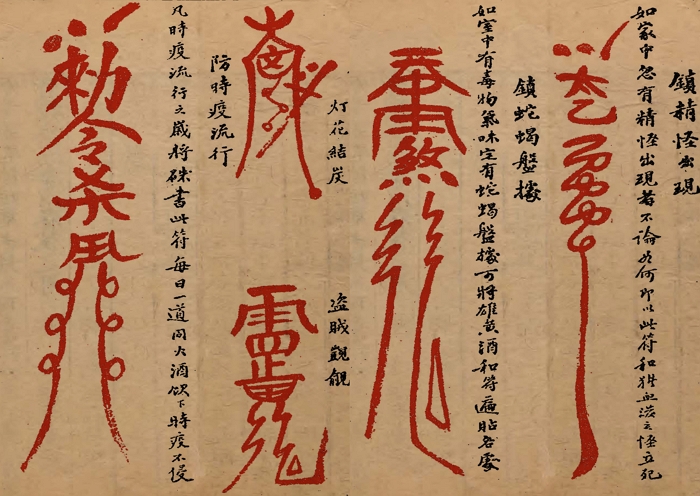 鎮精怪出現
如家中忽有精怪出現者不論如何即以此符和猪血潑之怪立死
鎮蛇蝎盤據
如室中有毒物氣味定有蛇蝎盤據可將雄黃酒和符遍貼各處
灯花結炭
盜賊觀觎
防時疫流行
凡時疫流行之歲將硃書此符每日一道同大酒飲下時疫不侵
勅令